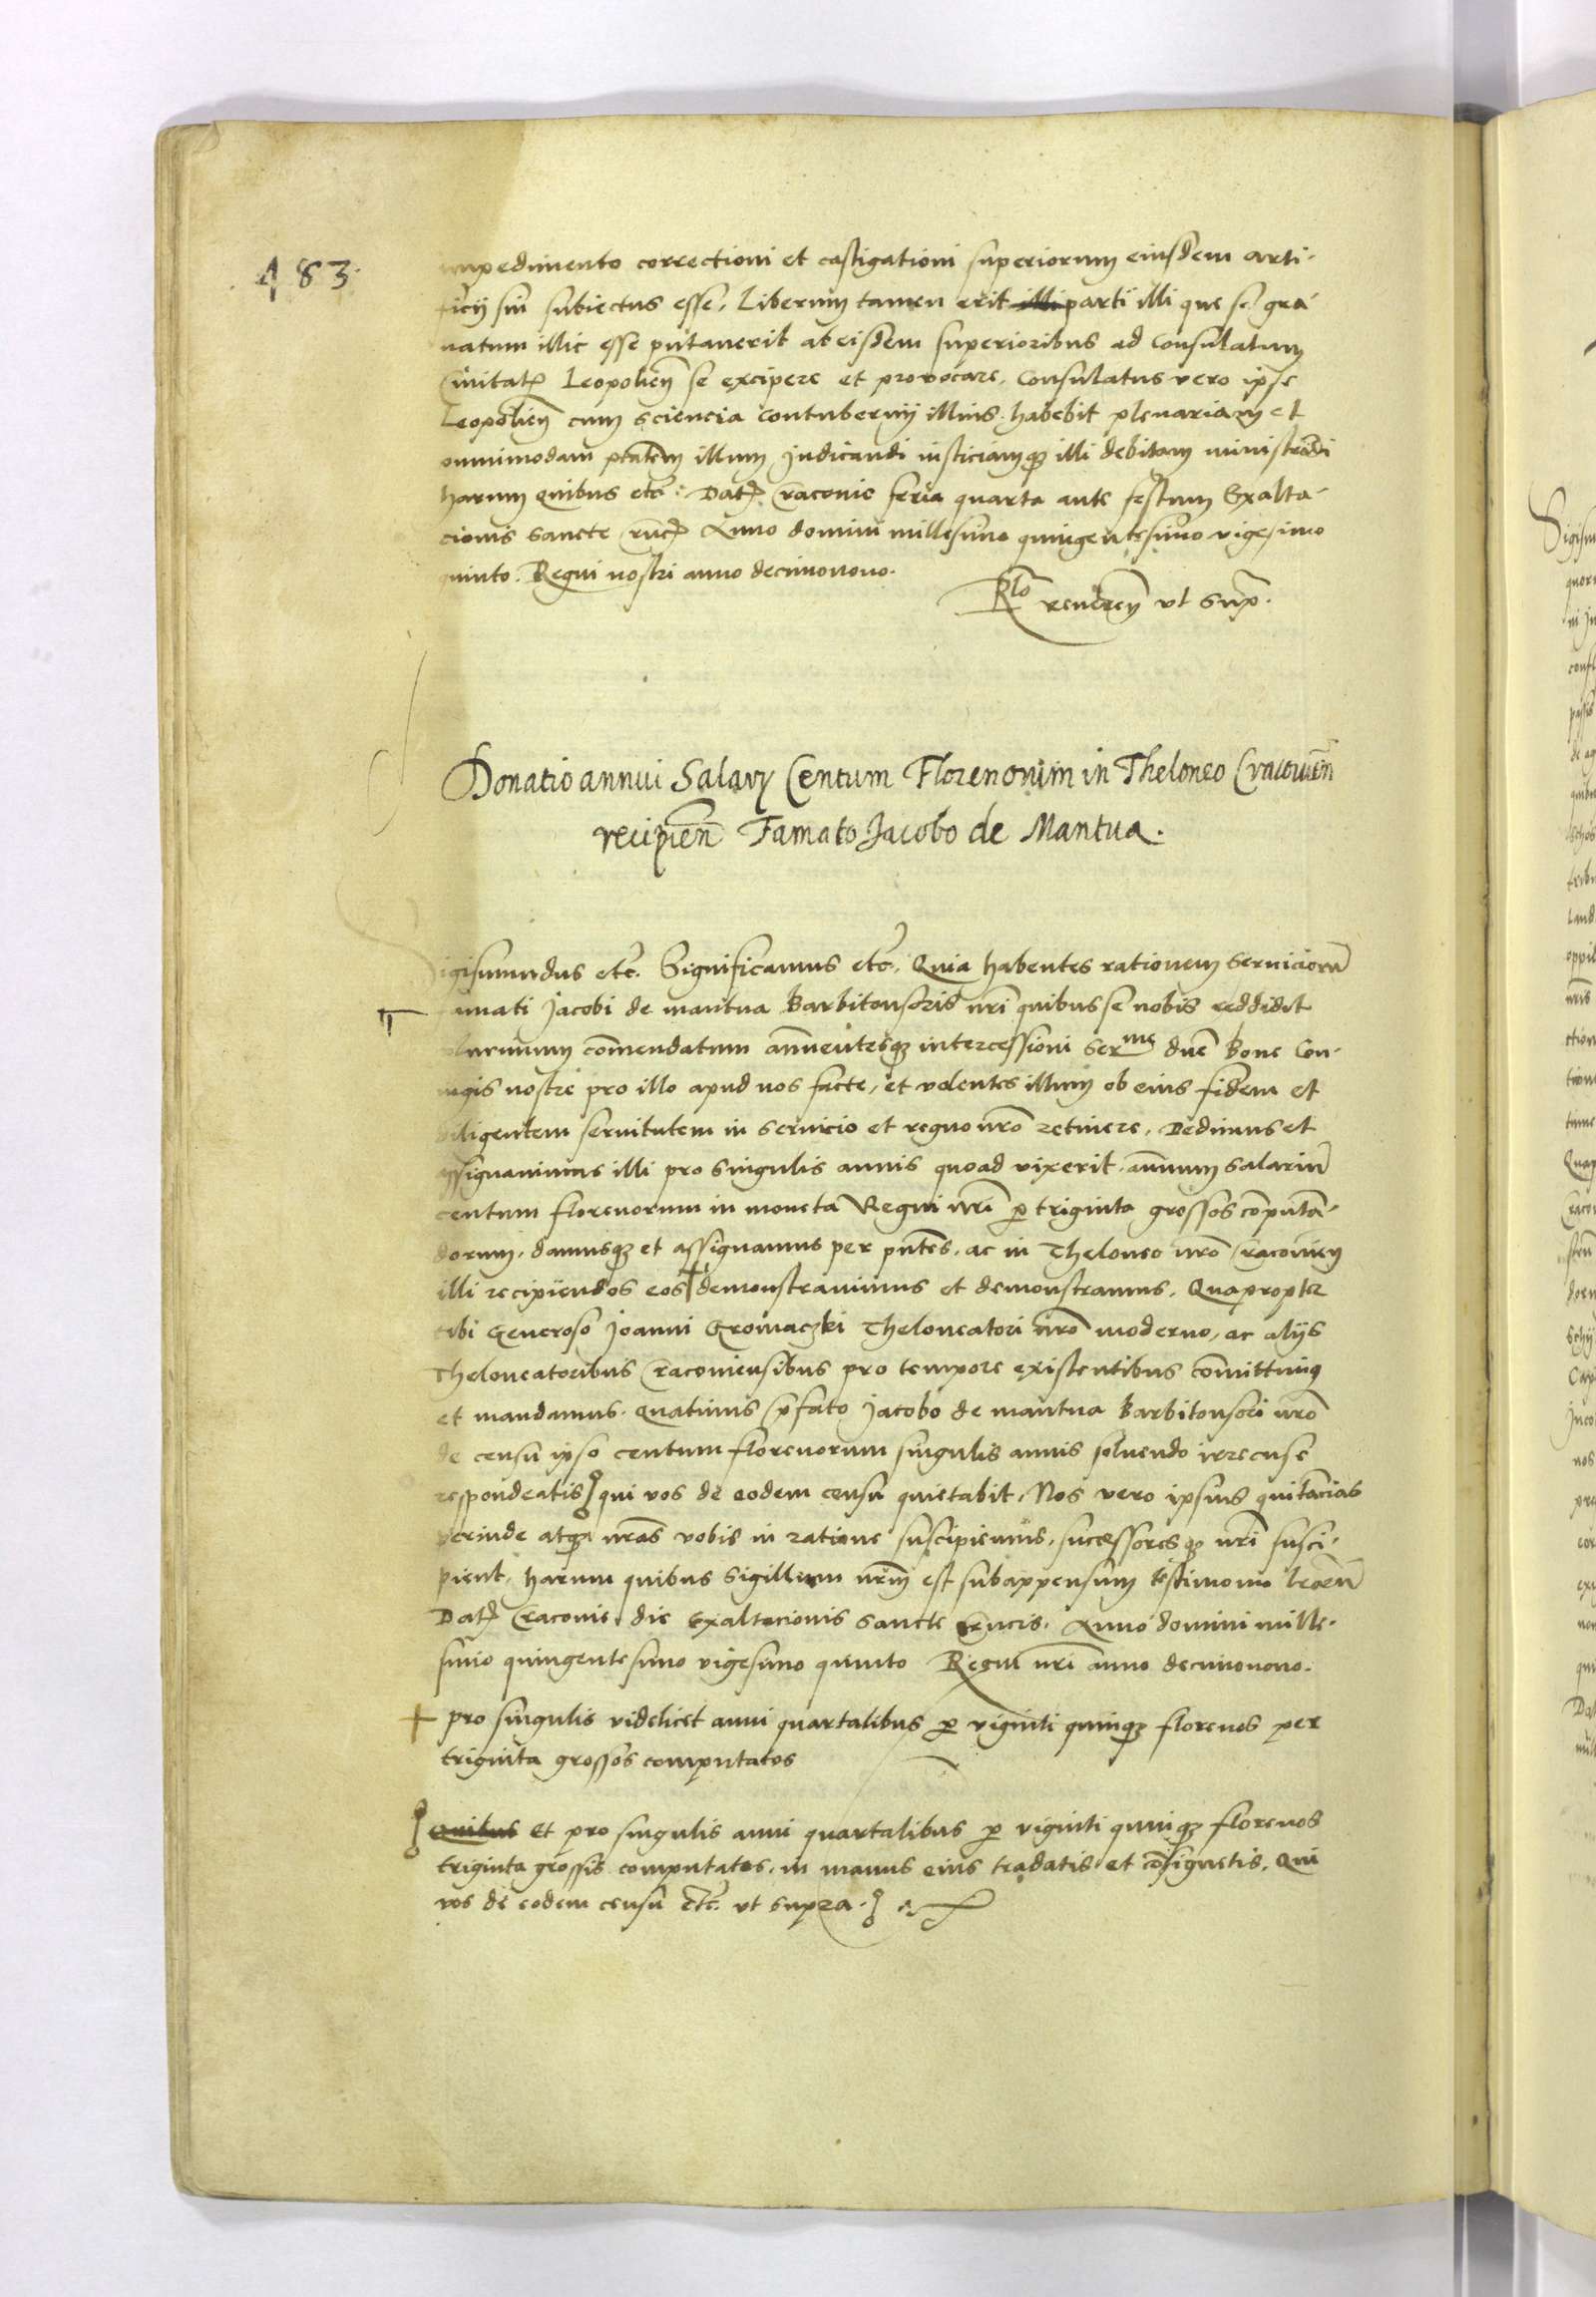 483.
impedimento correctioni et castigationi superiorum eiusdem arti-
ficij sui subiectus esse. Liberum tamen erit illi parti illi que se gra-
vatum illic esse putaverit ab eisdem superioribus ad Consulatum
Civitat Leopolien̄ se excipere et provocare. Consulatus vero ipse
Leopolien̄ cum sciencia Contubernij illius habebit plenariam et
omnimodam ptātem illum Iudicandi iusticiamq; illi debitam ministrādi
harum quibus etc̄. Dat Cracovie feria quarta ante festum Exalta-
cionis Sancte Cruc Anno domini millesimo quingentesimo vigesimo
quinto. Regni nostri anno decimonono.
Rlō reverēn ut sup̄.
Donatio annui Salarÿ Centum Florenorum in Theloneo Cracovień
recipien̄ Famato Jacobo de Mantua.
Sigismundus etc̄. Significamus etc̄. Quia habentes rationem Serviciorū
famati Jacobi de mantua Barbitonsoris nr̄i quibus se nobis reddidit
plurimum com̄endatum an̄uentesq; intercessioni Ser me dn̄e Bone Con-
iugis nostre pro illo apud nos facte, et volentes illum ob eius fidem et
diligentem servitutem in servicio et regno nr̄o retinere. Dedimus et
assignavimus illi pro singulis annis quoad vixerit. an̄uum salariū
centum florenorum in moneta Regni nr̄i p triginta grossos computā-
dorum. damusq; et assignamus per pn̄tes. ac in Theloneo nr̄o Cracovien̄
illi recipiendos eos + demonstravimus et demonstramus. Quapropter
tibi Generoso Joanni Gromaczki Theloneatori nr̄o moderno, ac alijs
Theloneatoribus Cracoviensibus pro tempore existentibus com̄ittimus
et mandamus. quatinus p̄fato Jacobo de mantua Barbitonsori nr̄o
de censu ipso centum florenorum singulis annis solvendo irrecuse
respondeatis qui vos de eodem censu quietabit. Nos vero ipsius quitācias
perinde atq; nr̄as vobis in ratione suscipiemus. successoresq; nr̄i susci-
pient. harum quibus Sigillum nr̄m est subappensum testimonio lrārū
Dat Cracovie die Exaltacionis Sancte Crucis. Anno domini mille-
simo quingentesimo vigesimo quinto Regni nr̄i anno decimonono.
+ pro singulis videlicet anni quartalibus p viginti quinq; florenos per
triginta grossos computatos
quibus et pro singulis anni quartalibus p viginti quinq; florenos
triginta grossis computatos. in manus eius tradatis et cōsignetis. Qui
vos de eodem censu etc̄. ut supra.